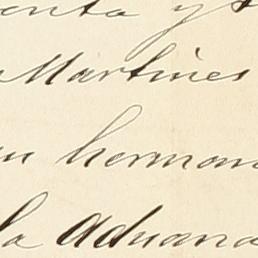 enta y s
Martines
su herman
la aduana